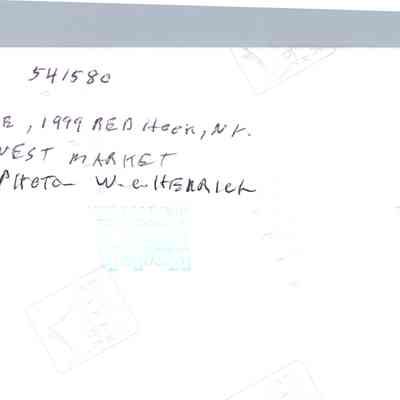 541580
E, 1999 RED Hook, NY.
WEST MARKET
PHOTO - W. C. HENRICH